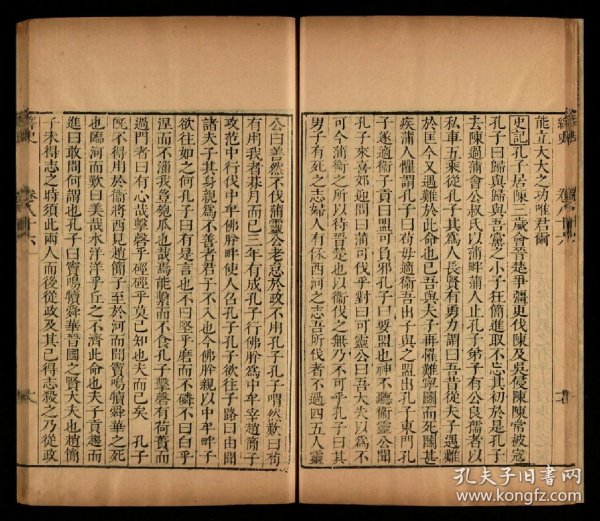 繹史 卷八十六
能立大夫之功唯君爾
史記孔子居陳三歲會晉楚爭彊更伐陳及吳侵陳陳常被寇
孔子曰歸與歸與吾黨之小子狂簡進取不忘其初於是孔子
去陳過蒲會公叔氏以蒲畔蒲人止孔子弟子有公良孺者以
私車五乘從孔子其爲人長賢有勇力謂曰吾昔從夫子遇難
於匡今又遇難於此命也已吾與夫子再罹難寧鬬而死鬬甚
疾蒲人懼謂孔子曰苟毋適衞吾出子與之盟出孔子東門孔
子遂適衞子貢曰盟可負邪孔子曰要盟也神不聽衞靈公聞
孔子來喜郊迎問曰蒲可伐乎對曰可靈公曰吾大夫以爲不
可今蒲衞之所以待晉楚也以衞伐之無乃不可乎孔子曰其
男子有死之志婦人有保西河之志吾所伐者不過四五人靈
公曰善然不伐蒲靈公老怠於政不用孔子孔子喟然歎曰苟
有用我者朞月而已三年有成孔子行佛肸爲中牟宰趙簡子
攻范中行伐中牟佛肸畔使人召孔子孔子欲往子路曰由聞
諸夫子其身親爲不善者君子不入也今佛肸親以中牟畔子
欲往如之何孔子曰有是言也不曰堅乎磨而不磷不曰白乎
涅而不淄我豈匏瓜也哉焉能繫而不食孔子擊磬有荷蕢而
過門者曰有心哉擊磬乎硜硜乎莫己知也夫而已矣 孔子
既不得用於衞將西見趙簡子至於河而聞竇鳴犢舜華之死
也臨河而歎曰美哉水洋洋乎丘之不濟此命也夫子貢趨而
進曰敢問何謂也孔子曰竇鳴犢舜華晉國之賢大夫也趙簡
子未得志之時須此兩人而後從政及其已得志殺之乃從政
繹史 卷八十六
孔夫子旧书网
www.kongfz.com